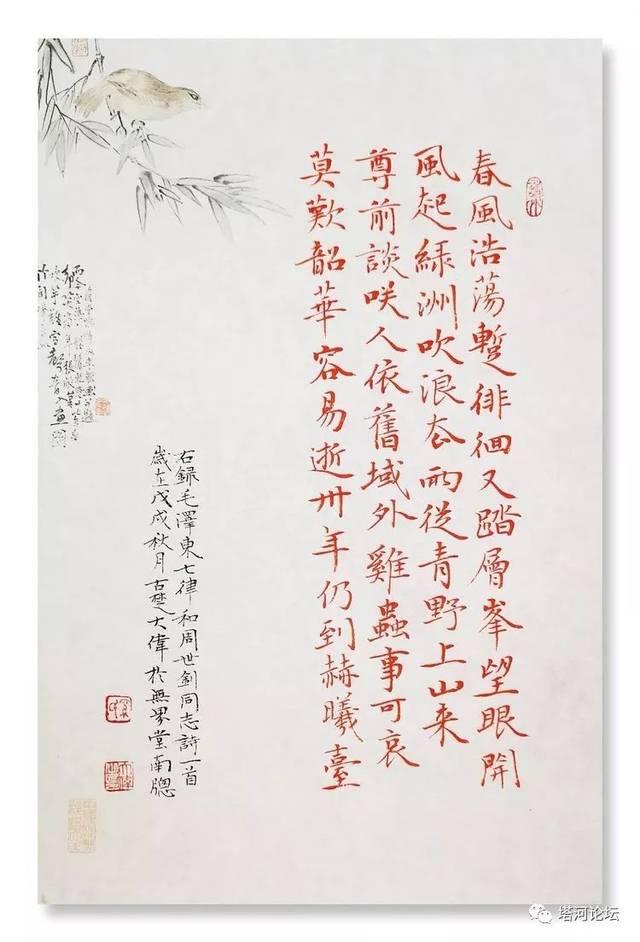 春風浩蕩蹔徘徊又踏層峯望眼開
風起緑洲吹浪去雨從青野上山来
尊前談咲人依舊域外雞蟲事可哀
莫歎韶華容易逝卅年仍到赫曦臺
右録毛澤東七律和周世釗同志詩一首
歲在戊戌秋月古楚大偉於無界堂南牕
塔河论坛